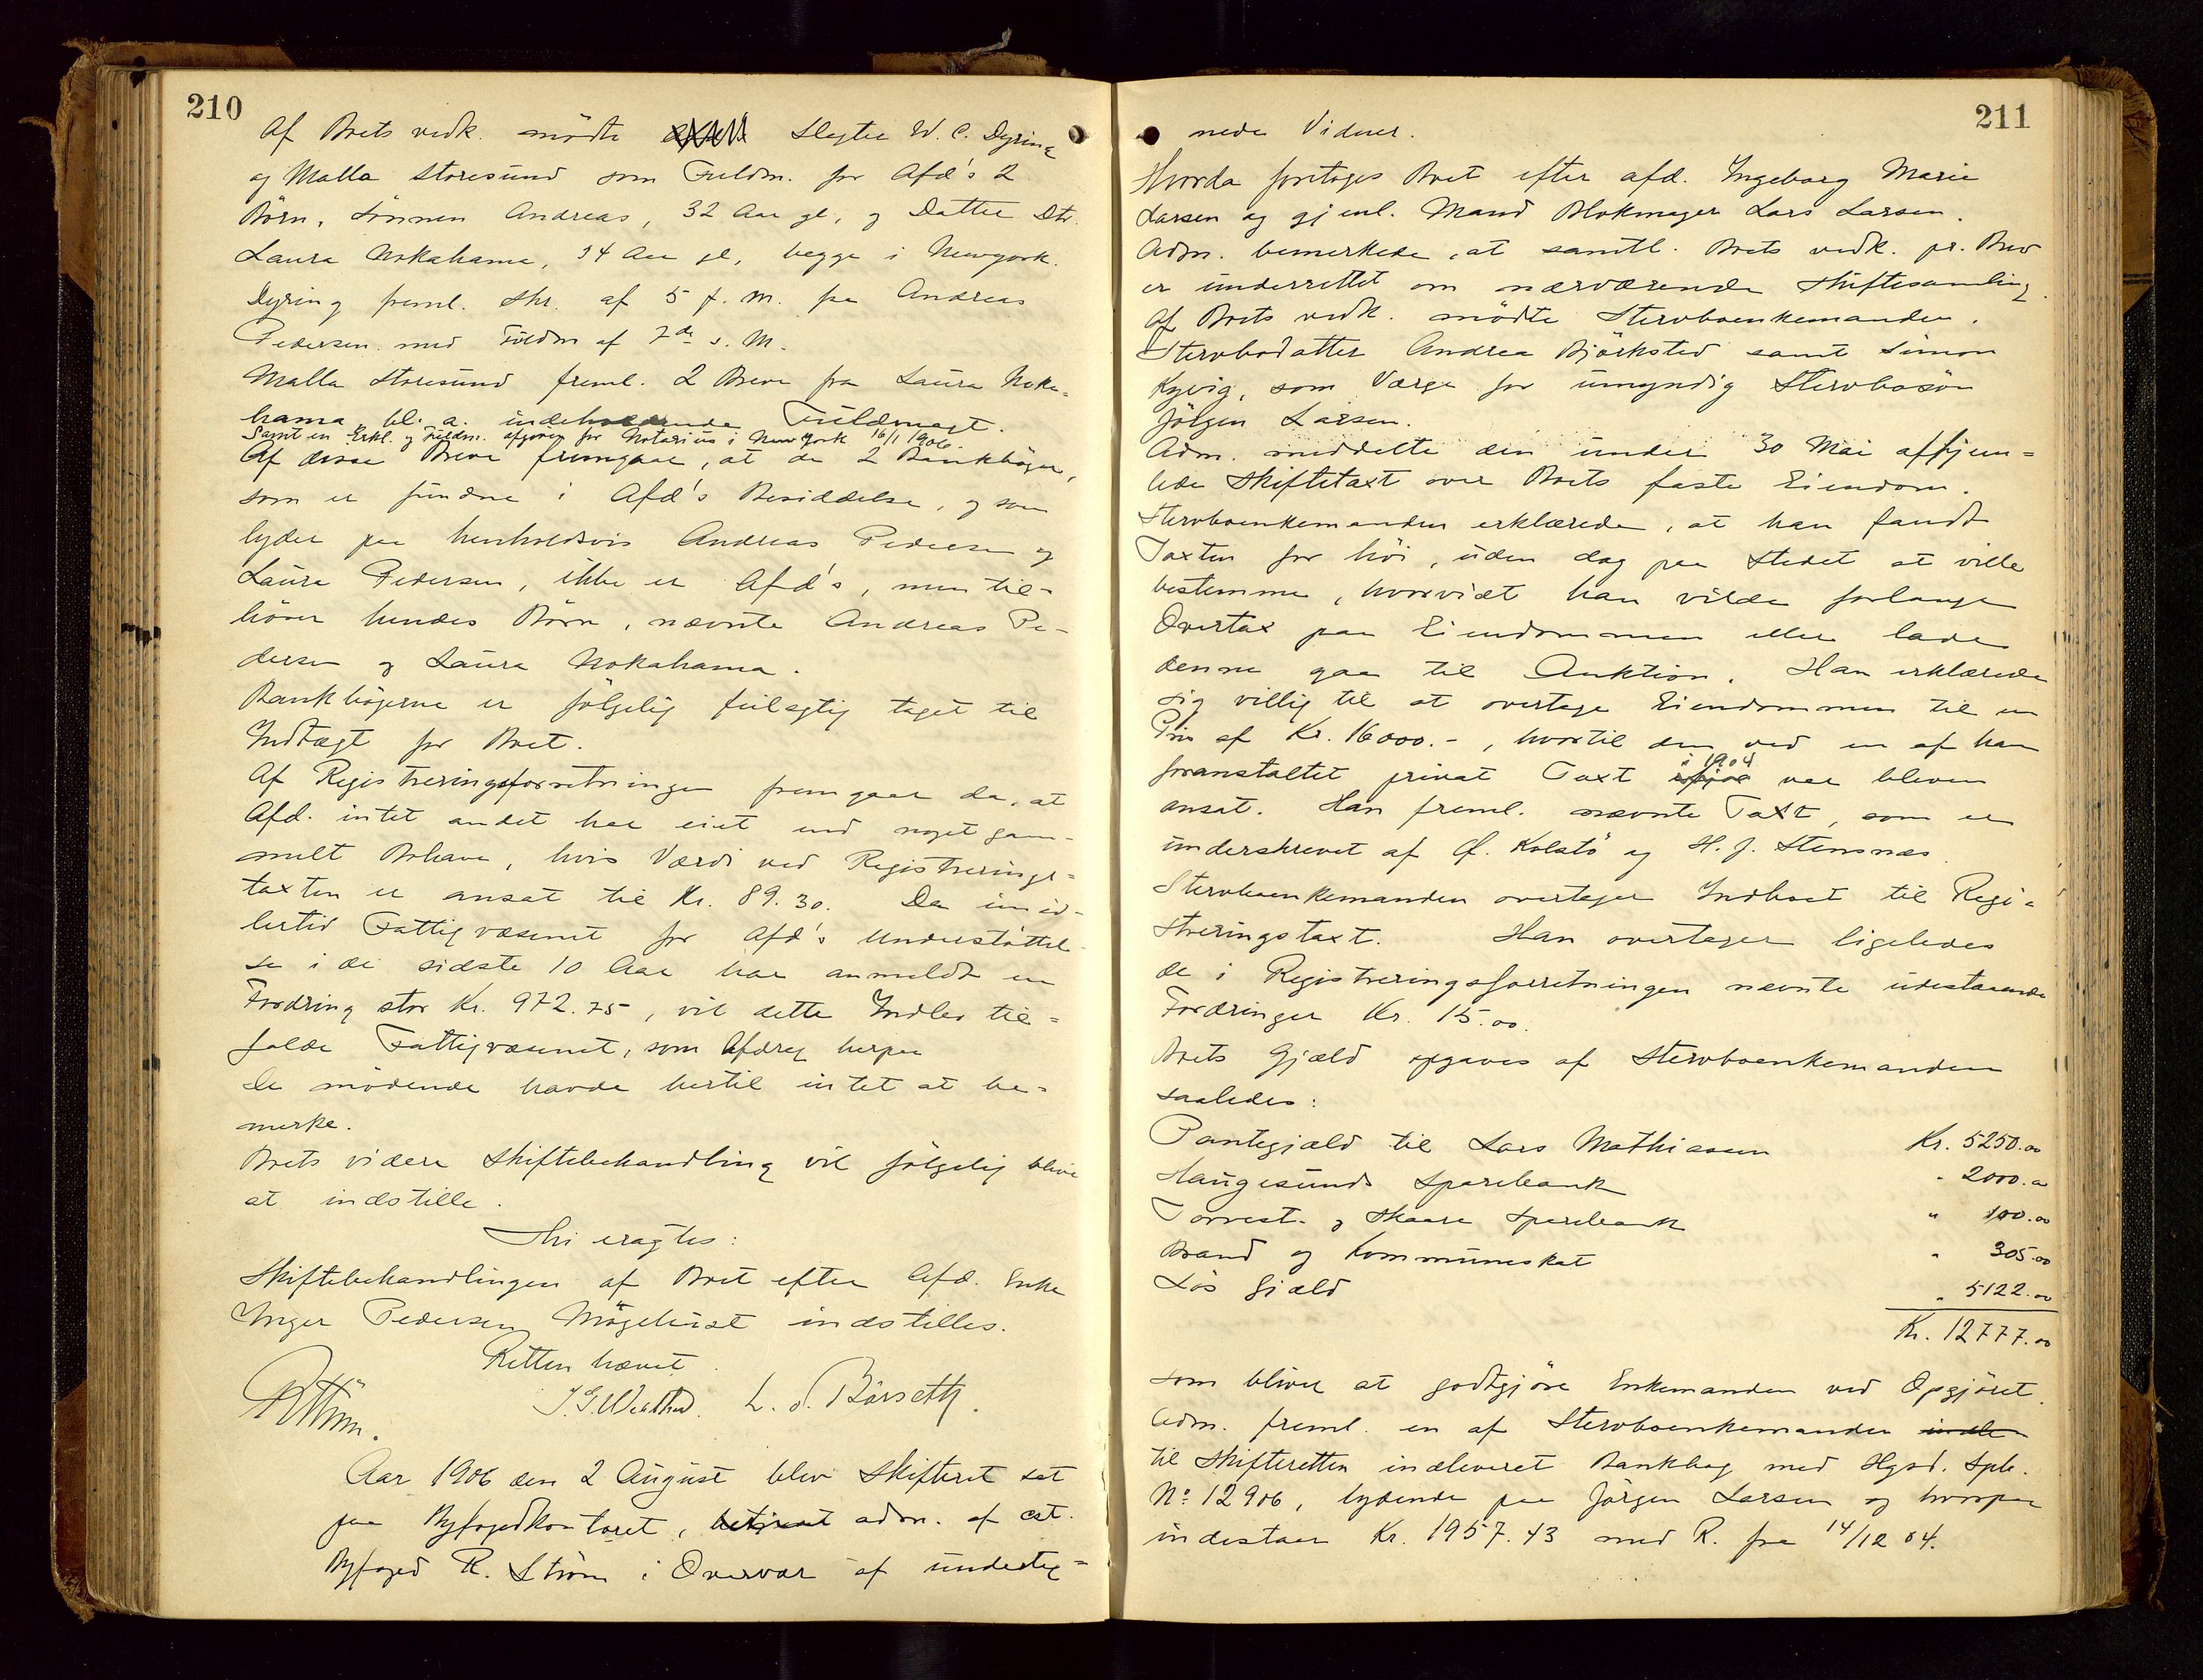 210
Af Boets vedk. mödte Slagter W. C. Dyring
og Malla Storesund som Fuldm. for Afd's 2
Börn, Sönnen Andreas, 32 Aar gl, og Datter Dtr.
Laura Nokahama, 34 Aar gl, begge i Newyork.
Dyring freml. Skr. af 5 f. M. fra Andreas
Pedersen med Fuldm af 7de s. M.
Malla Storesund freml. 2 Breve fra Laura Noka-
hama bl. a. indeholdende Fuldmagt.
Samt en Erkl. og Fuldm. afgiven for Notarius i New York 16/1 1906.
Af disse Breve fremgaar, at de 2 Bankböger,
som er fundne i Afd's Besiddelse, og som
lyder paa henholdsvis Andreas Pedersen og
Laura Pedersen, ikke er Afd's, men til-
hörer hendes Börn, nævnte Andreas Pe-
dersen og Laura Nokahama.
Bankbögerne er fölgelig feilagtig taget til
Indtægt for Boet.
Af Registreringsforretningen fremgaar da, at
Afd. intet andet har eiet end noget gam-
melt Bohave, hvis Værdi ved Registrerings-
taxten er ansat til Kr. 89.30. Da imid-
lertid Fattigvæsenet for Afd's Understöttel-
se i de sidste 10 Aar har anmeldt en
Fordring stor Kr. 972.75, vil dette Indbo til-
falde Fattigvæsenet, som Afdrag herpaa
De mödende havde hertil intet at be-
merke.
Boets videre Skiftebehandling vil fölgelig blive
at indstille.
Thi eragtes:
Skiftebehandlingen af Boet efter Afd. Enke
Inger Pedersen Mögehust indstilles.
Retten hævet.
L. Börseth.
Aar 1906 den 2 August blev Skifteret sat
paa Byfogedkontoret, betjent adm. af cst.
Byfoged R. Ström i Overvær af underteg-
211
nede Vidner.
Hvorda foretoges Boet efter afd. Ingeborg Marie
Larsen og gjenl. Mand Blokmager Lars Larsen.
Adm. bemerkede, at samtl. Boets vedk. pr. Brev
er underrettet om nærværende Skiftesamling.
Af Boets vedk. mödte Stervboenkemanden,
Stervbodatter Andrea Björksted samt Simon
Kyvig, som Værge for umyndig Stervbosön
Jörgen Larsen.
Adm. meddelte den under 30 Mai afhjem-
lede Skiftetaxt over Boets faste Eiendom.
Stervboenkemanden erklærede, at han fandt
Taxten for höi, uden dog paa Stedet at ville
bestemme, hvorvidt han vilde forlange
Overtax paa Eiendommen eller lade
denne gaa til Auktion. Han erklærede
sig villig til at overtage Eiendommen til en
Pris af Kr. 16000.-, hvortil den ved en af ham
foranstaltet privat Taxt i 1904 var bleven
ansat. Han freml. nævnte Taxt, som er
underskrevet af O. Kolstö og H. J. Stensnæs.
Stervboenkemanden overtager Indboet til Regi-
streringstaxt. Han overtager ligeledes
de i Registreringsforretningen nævnte udestaaende
Fordringer Kr. 15.00.
Boets Gjæld opgaves af Stervboenkemanden
saaledes:
Pantegjæld til Lars Mathiassen Kr. 5250.00
Haugesunds Sparebank " 2000.00
Torvest. og Skaare Sparebank " 100.00
Brand og Kommuneskat " 305.00
Lös Gjæld " 5122.00
Kr. 12777.00
som bliver at godtgjöre Enkemanden ved Opgjöret.
Adm. freml. en af Stervboenkemanden inde
til Skifteretten indleveret Bankbog med Hgsd. Spb.
No 12906, lydende paa Jörgen Larsen og hvorpaa
indestaar Kr. 1957.43 med R. fra 14/12 04.